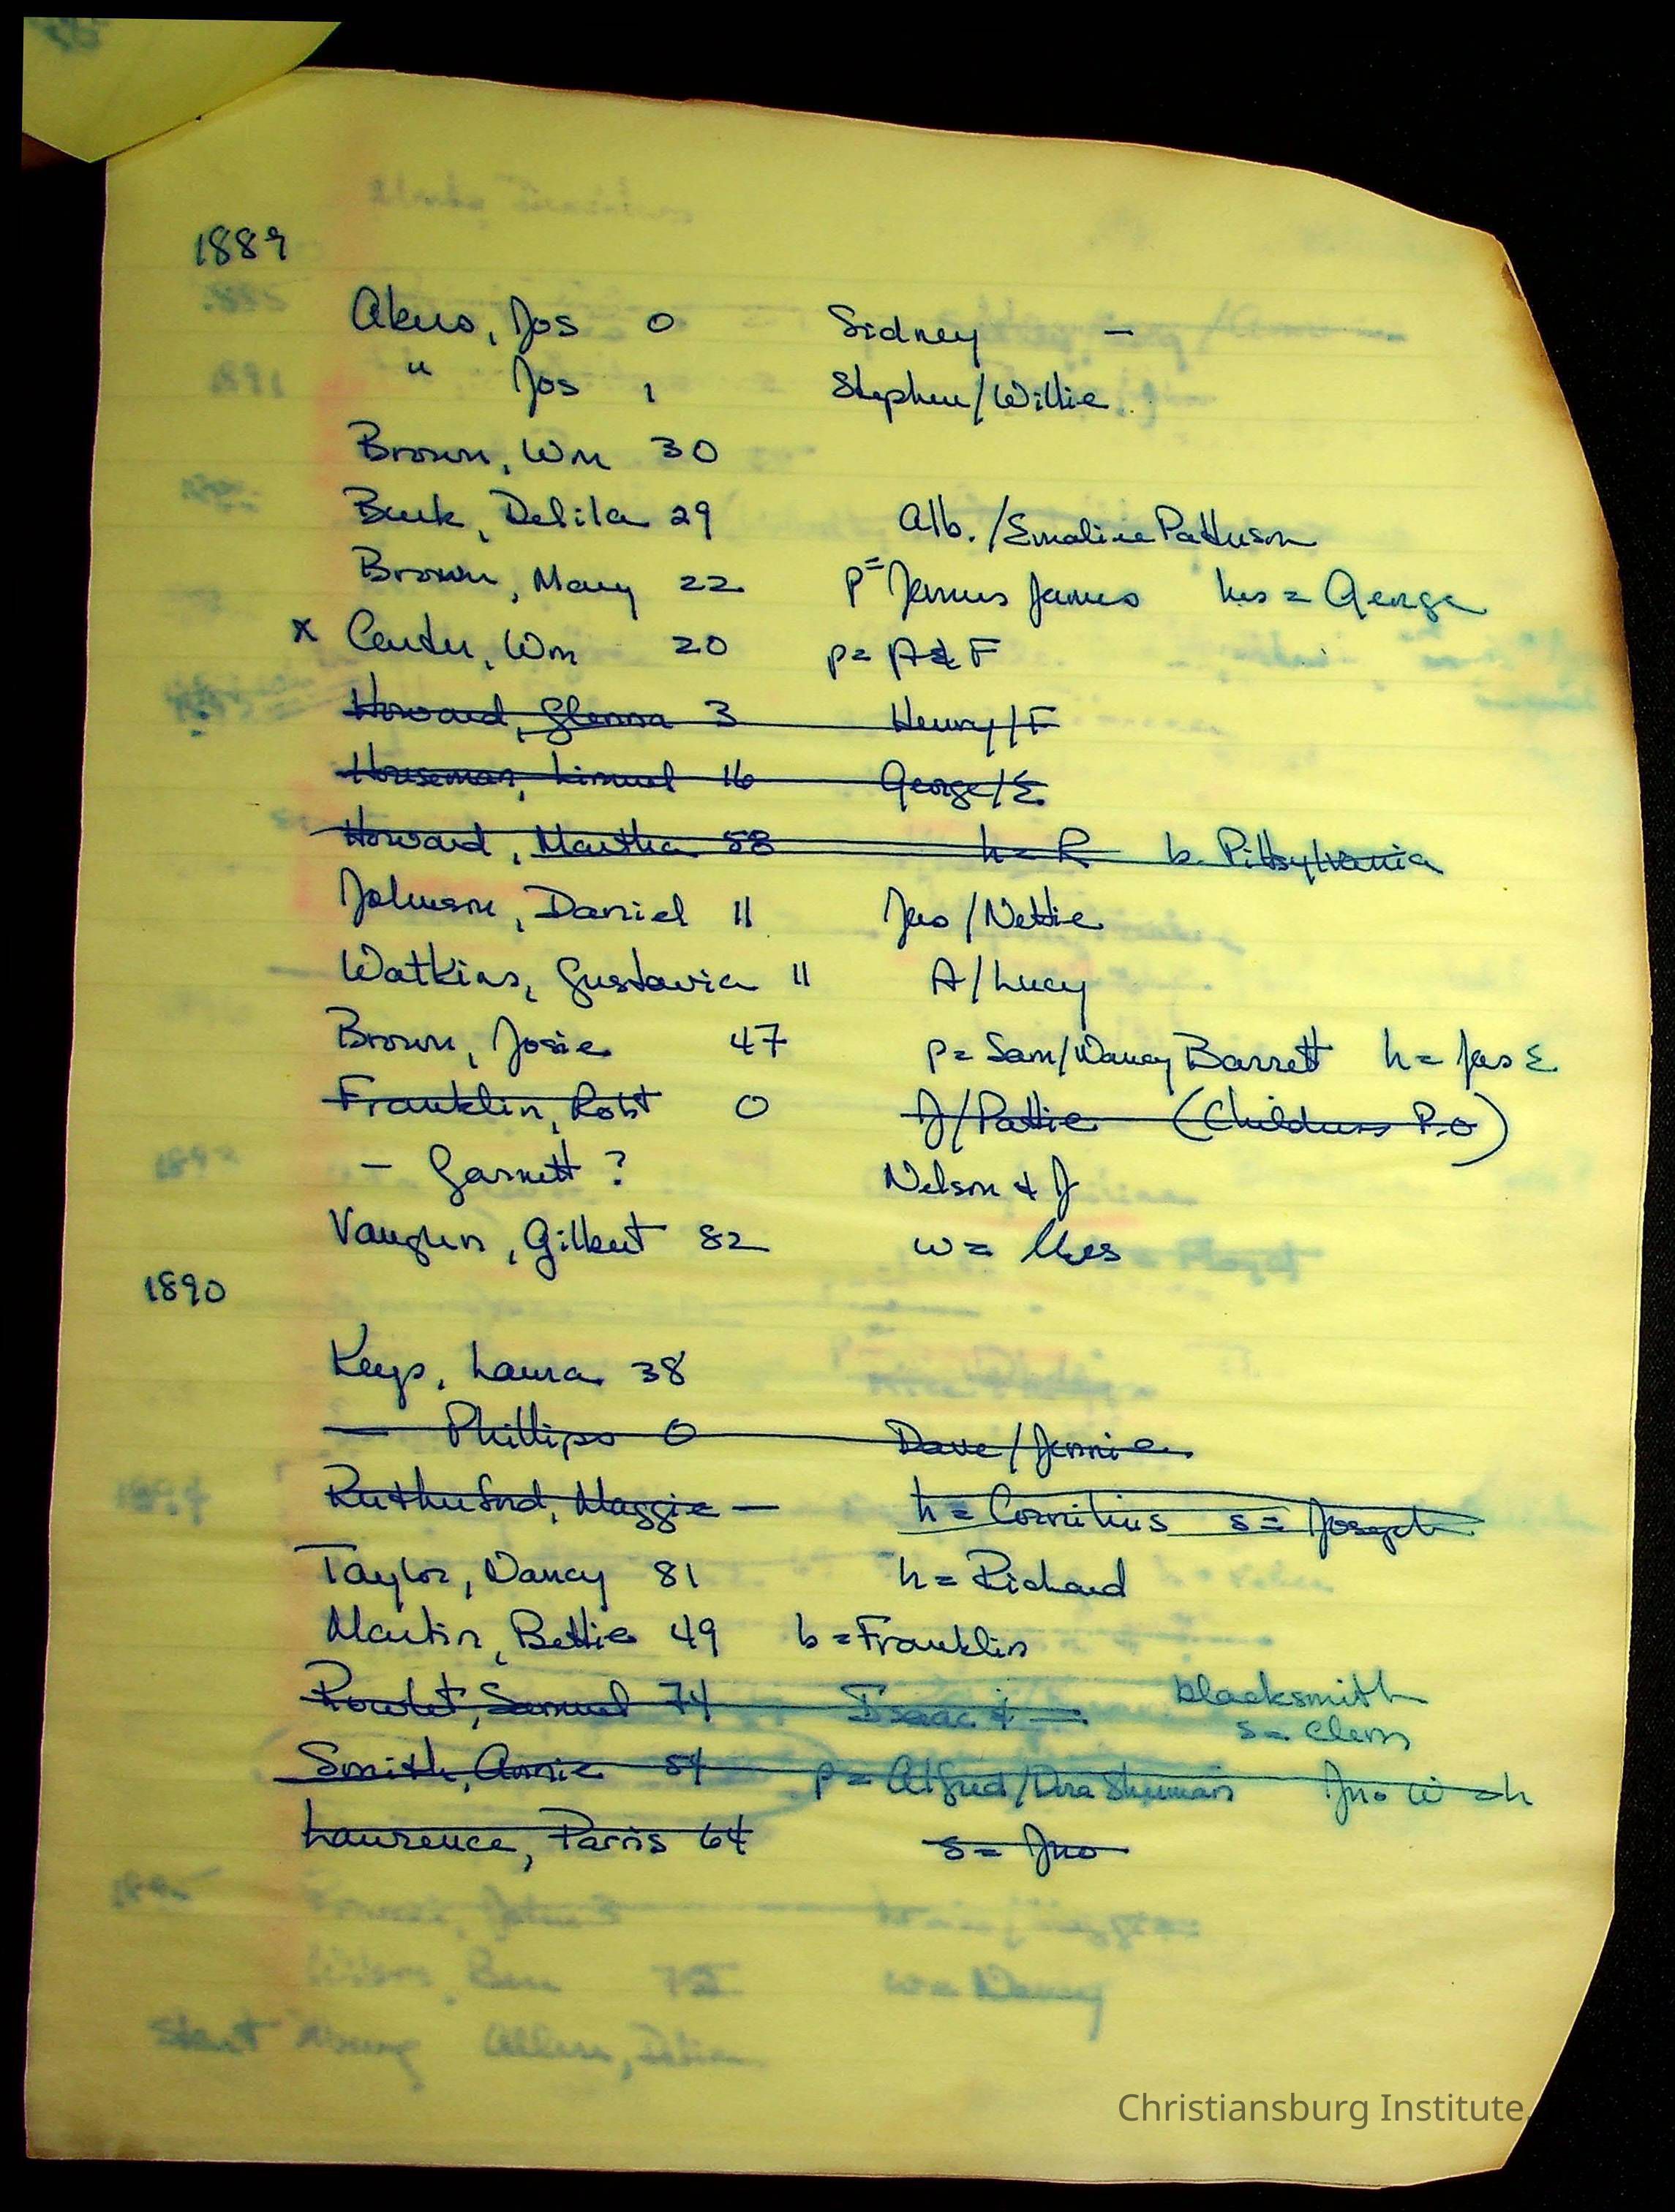 1889
Akers, Jos 0 Sidney -
" Jos 1 Stephen/Willie
Brown, Wm 30
Burk, Delila 29 Alb./Emaline Patterson
Brown, Mary 22 p= James James hus = George
x Center, Wm 20 p= A & F
Howard, Glenna 3 Henry/F
Houseman, Limuel 16 George/E
Howard, Martha 58 h= R b. Pittsylvania
Johnson, Daniel 11 Jno/Nettie
Watkins, Gustavia 11 A/Lucy
Brown, Josie 47 p= Sam/Nancy Barrett h= Jas E
Franklin, Robt 0 J/Pattie (Childress P.O)
- Garnett ? Nelson & J
Vaughn, Gilbert 82 w=
1890
Keys, Laura 38
— Phillips 0 Dave/Jennie
Rutherford, Maggie — h= Cornilius s= Joseph
Taylor, Nancy 81 h= Richard
Martin, Bettie 49 b=Franklin
Rowlet, Samuel 74 Isaac & — blacksmith
s= Clem
Smith, Annie 54 p= Alfred/Dra Sherman Jno W = h
Lawrence, Parris 64 s= Jno
Christiansburg Institute,